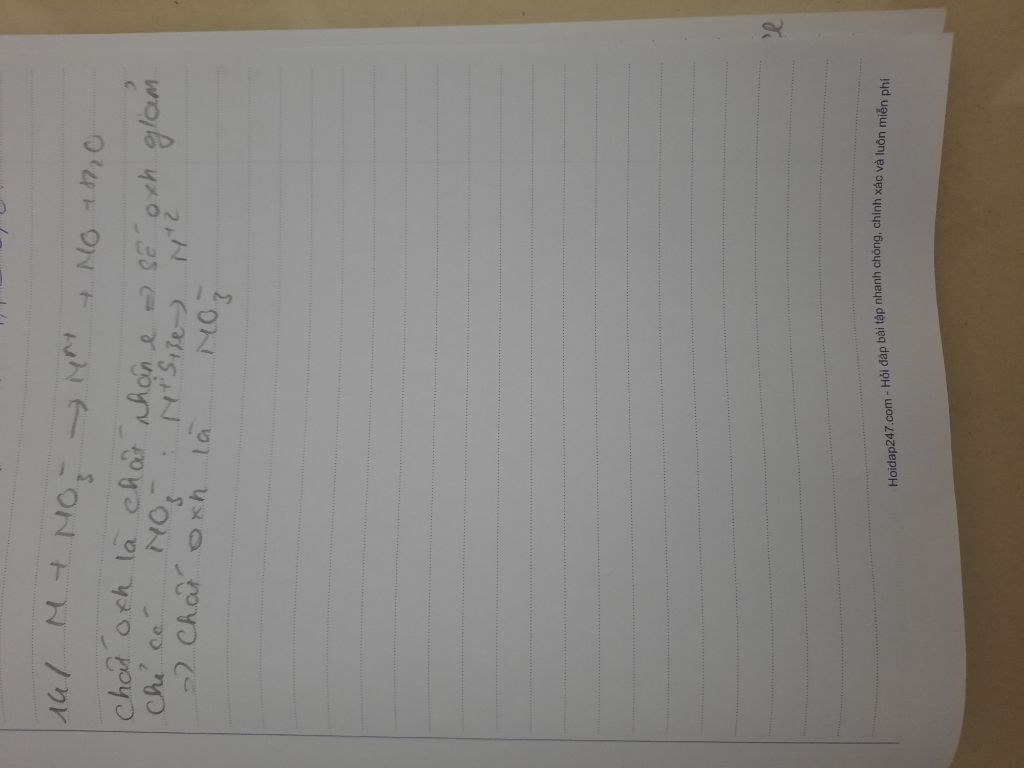 14/ M + NO3⁻ → Mⁿ⁺ + NO + H2O
chất oxh là chất nhận e => số oxh giảm
chỉ có NO3⁻ : N⁺⁵ + 3e → N⁺²
=> chất oxh là NO3⁻
Hoidap247.com - Hỏi đáp bài tập nhanh chóng, chính xác và luôn miễn phí